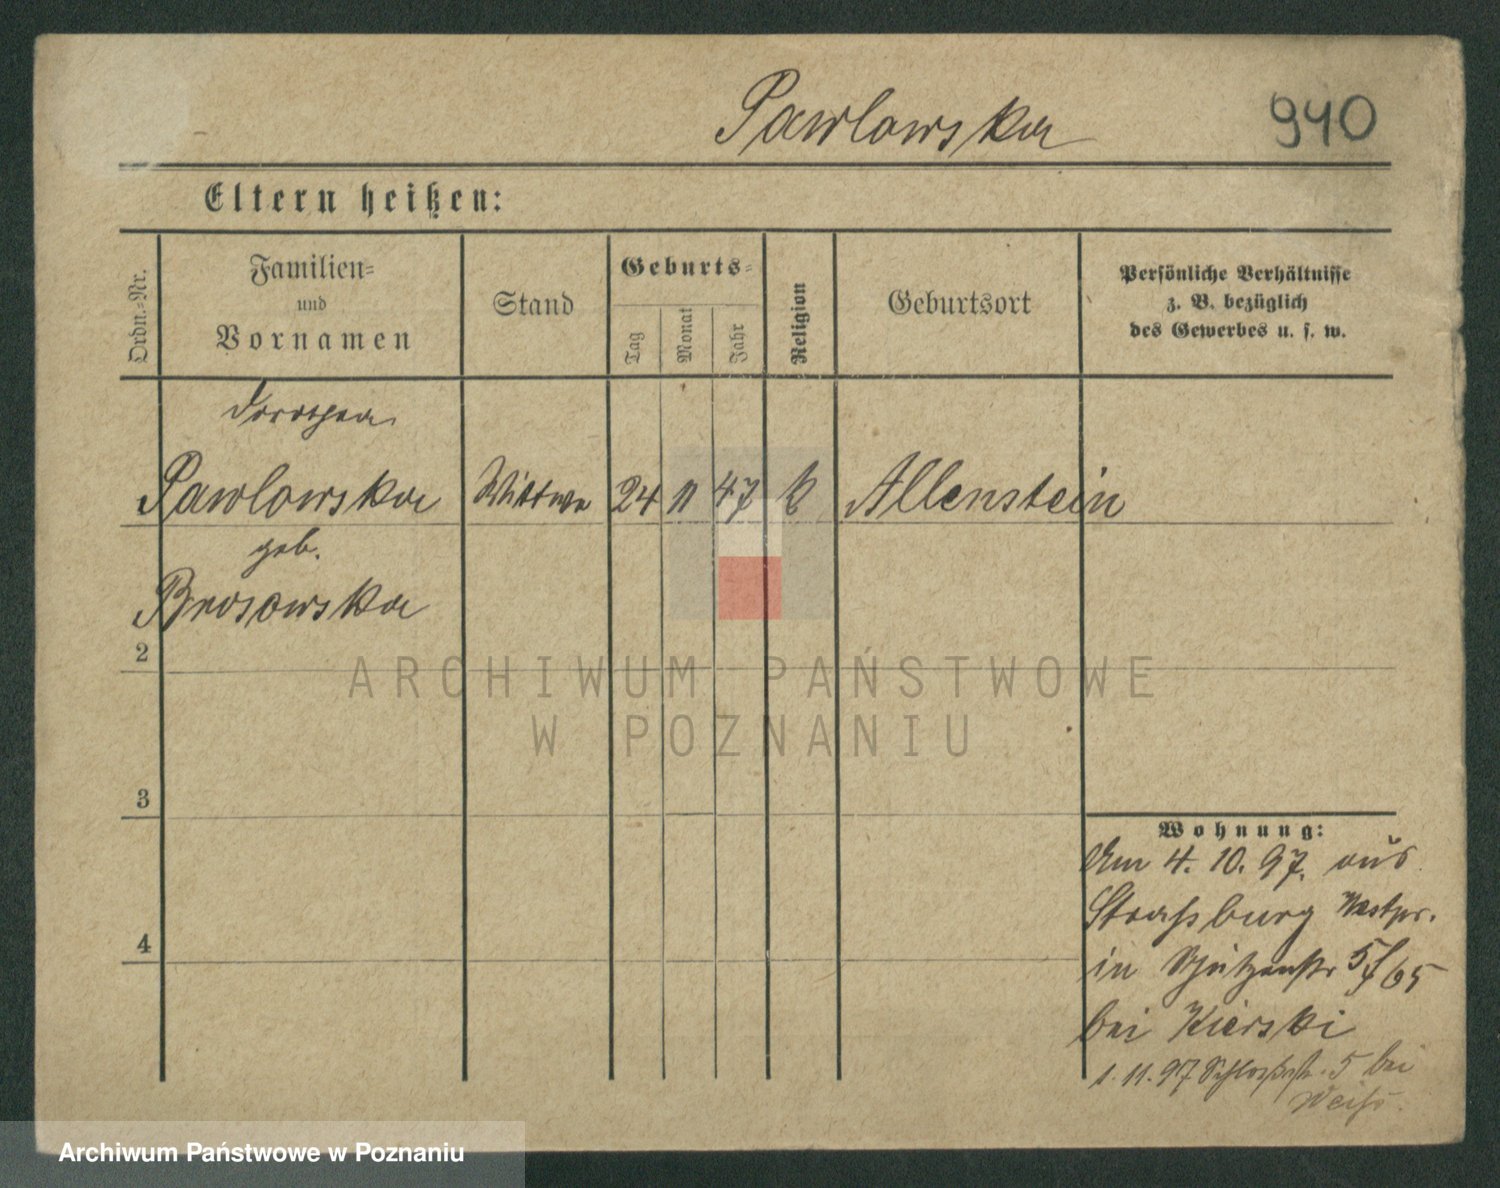 Pawlowska 940
Eltern heißen:
Ordn.-Nr.
Familien-
und
Vornamen
Stand
Geburts-
Tag
Monat
Jahr
Religion
Geburtsort
Persönliche Verhältnisse
z. B. bezüglich
des Gewerbes u. s. w.
Dorothea
Pawlowska Wittwe 24 11 47 k Allenstein
geb.
Brosowska
2
ARCHIWUM PAŃSTWOWE
W POZNANIU
3
Wohnung:
Am 4. 10. 97. aus
Straßburg Westpr.
4
in Schützenstr 5/65
bei Kierski
1. 11. 97 Schloßstr. 5 bei
Weiss.
Archiwum Państwowe w Poznaniu